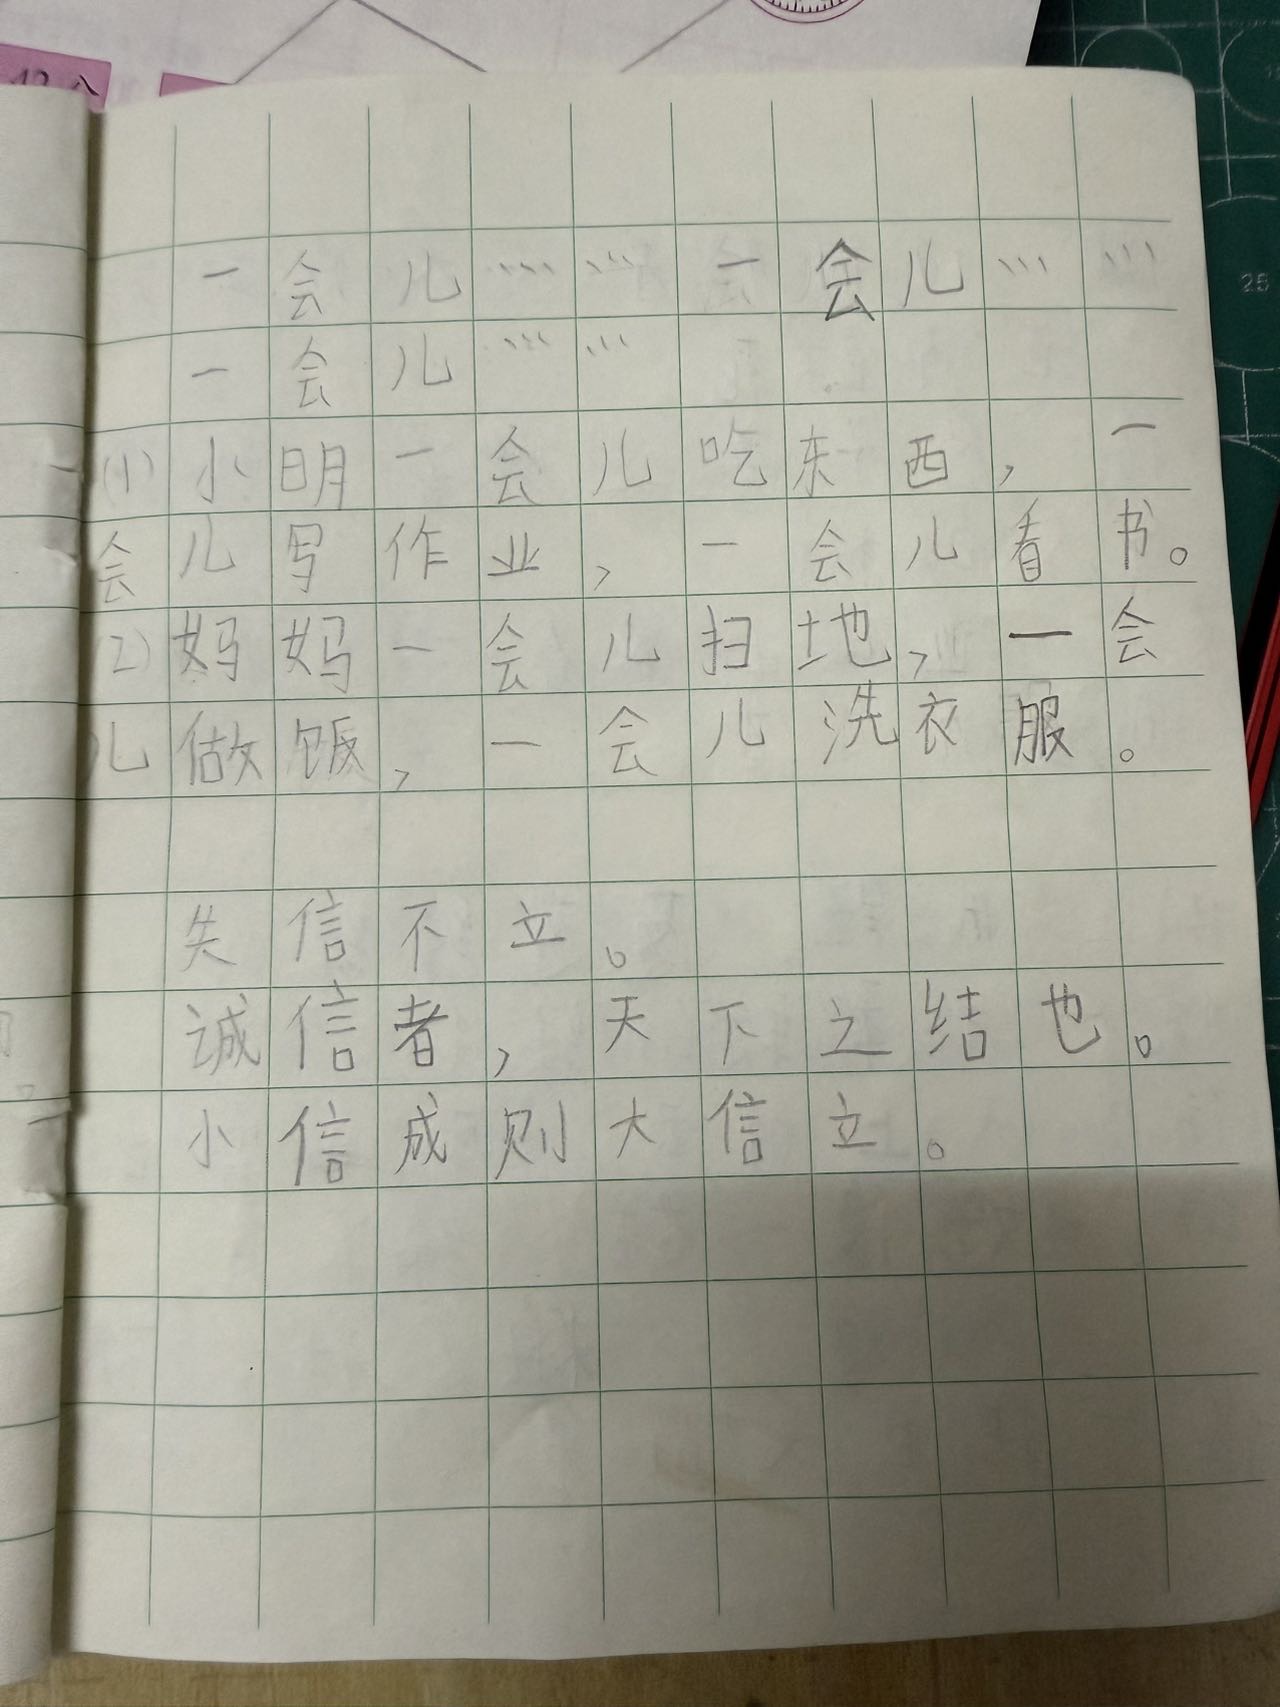 12个
一会儿…………一会儿…………
一会儿…………
(1)小明一会儿吃东西，一
会儿写作业，一会儿看书。
(2)妈妈一会儿扫地，一会
儿做饭，一会儿洗衣服。
失信不立。
诚信者，天下之结也。
小信成则大信立。
25